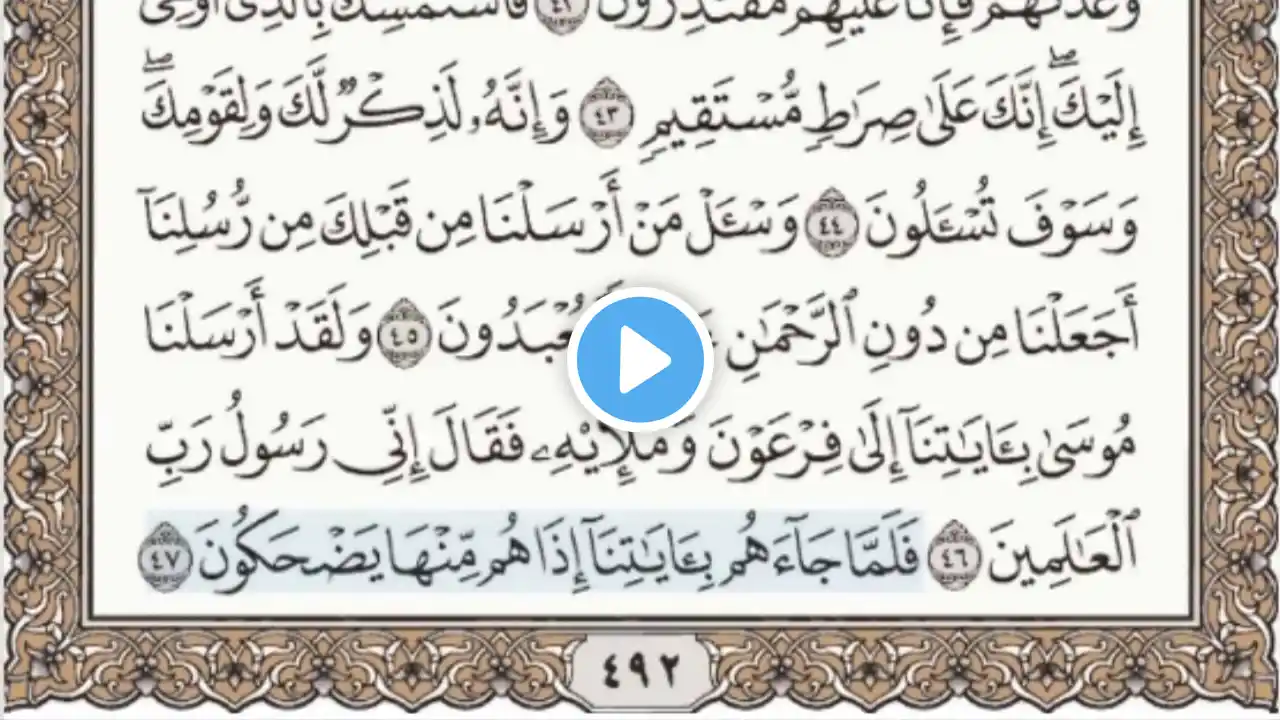 وَعَدْنَٰهُمْ فَإِنَّا عَلَيْهِم مُّقْتَدِرُونَ ٤٢ فَٱسْتَمْسِكْ بِٱلَّذِىٓ أُوحِىَ
إِلَيْكَ ۖ إِنَّكَ عَلَىٰ صِرَٰطٍ مُّسْتَقِيمٍ ٤٣ وَإِنَّهُۥ لَذِكْرٌ لَّكَ وَلِقَوْمِكَ ۖ
وَسَوْفَ تُسْـَٔلُونَ ٤٤ وَسْـَٔلْ مَنْ أَرْسَلْنَا مِن قَبْلِكَ مِن رُّسُلِنَآ
أَجَعَلْنَا مِن دُونِ ٱلرَّحْمَٰنِ ٤٥ وَلَقَدْ أَرْسَلْنَا
مُوسَىٰ بِـَٔايَٰتِنَآ إِلَىٰ فِرْعَوْنَ وَمَلَإِي۟هِۦ فَقَالَ إِنِّى رَسُولُ رَبِّ
ٱلْعَٰلَمِينَ ٤٦ فَلَمَّا جَآءَهُم بِـَٔايَٰتِنَآ إِذَا هُم مِّنْهَا يَضْحَكُونَ ٤٧
٤٩٢